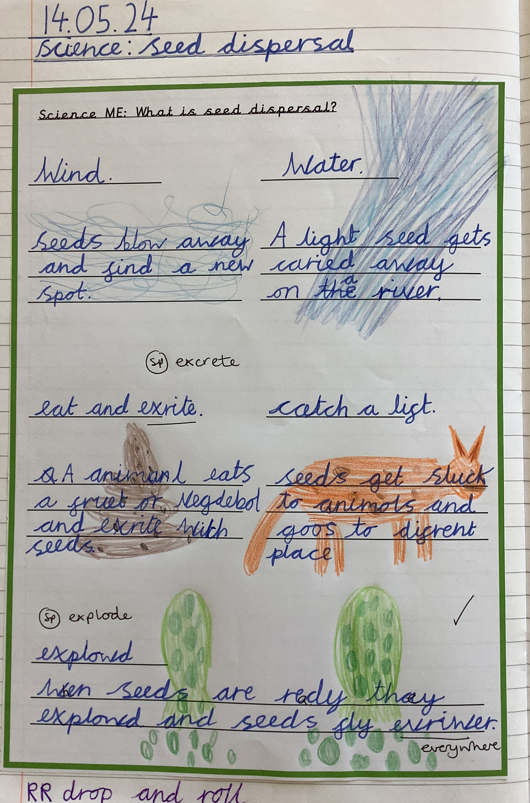 14.05.24
Science: seed dispersal
Science ME: What is seed dispersal?
Wind.
Water.
seeds blow away
and find a new
spot.
A light seed gets
caried away
on the a river.
sp excrete
eat and exrite.
catch a lift.
A animanl eats
a fruet or vegdebol
and exrite with
seeds.
seeds get stuck
to animols and
goos to difrent
place
sp explode
explowd
when seeds are redy they
explowd and seeds fly evriwer.
everywhere
RR drop and roll